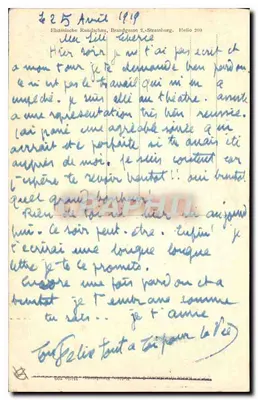 Le 25 Avril 1919
Elsässische Kunstanstalt, Strassburg.
Ma Lili Chérie
Hier soir je ne t'ai pas écrit et a
mon tour je te demande bien pardon
ce n'est pas le travail qui m'en a
empêché. Je suis allé au théatre. assisté
a une représentation très bien réussie.
J'ai passé une agréable soirée q. m
aurait été parfaite si tu avais été
auprès de moi. Je suis content car
j'espère te revoir bientôt!! oui bientôt
quel grand bonheur!
Rien de toi hier, ni aujourd
hui. Ce soir peut-être. Enfin! je
t'écrirai une longue longue
lettre je te le promets.
Encore une fois pardon et a
bientot je t'embrasse comme
tu sais.. je t'aime
Ton Felix tout a toi pour la Vie